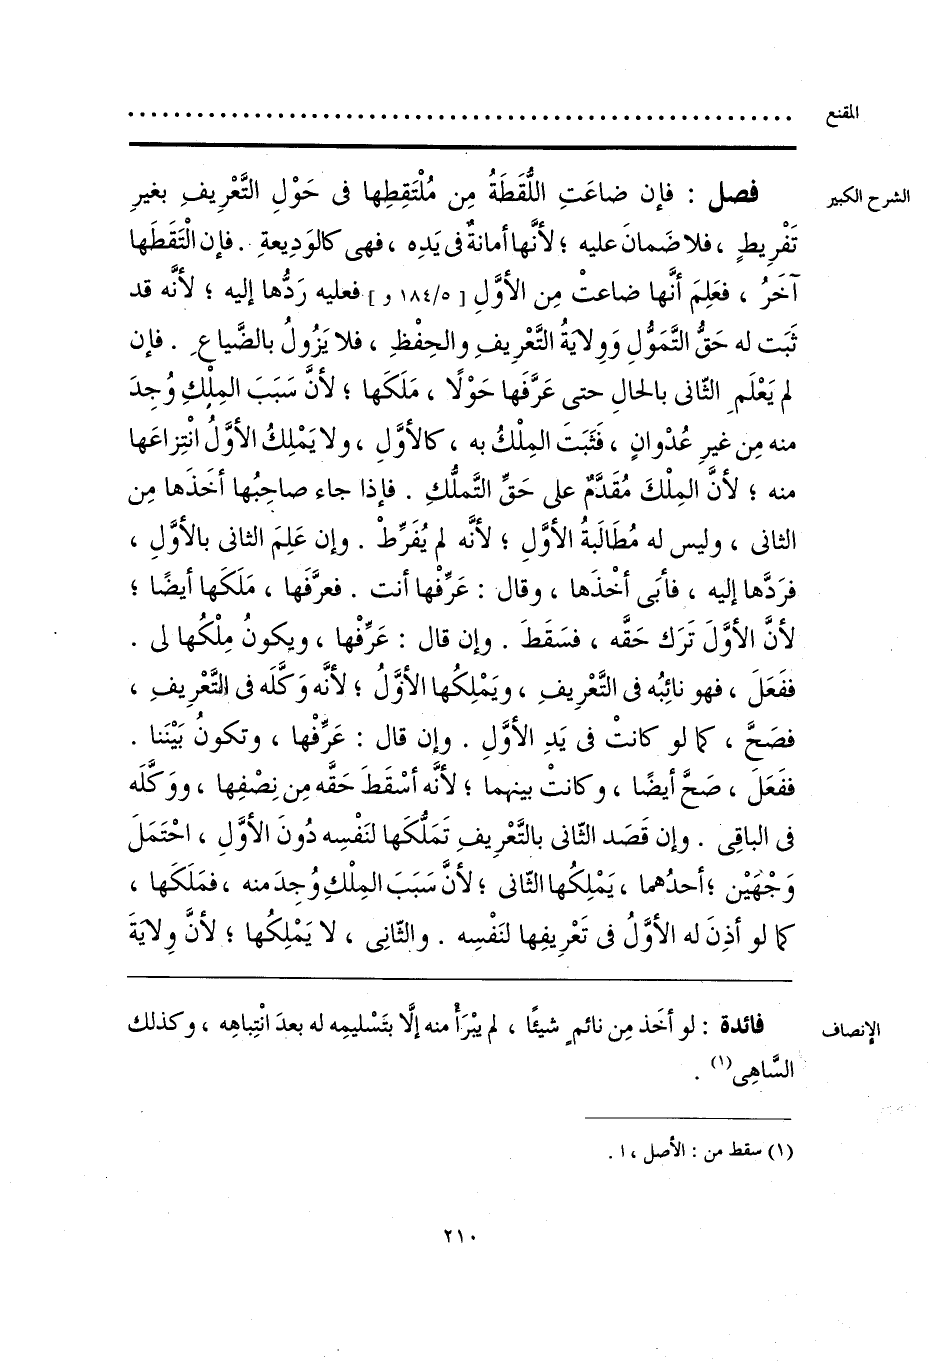 المقنع ................................................................
الشرح الكبير فصل : فإن ضاعَتِ اللُّقَطَةُ مِن مُلْتَقِطِها فى حَوْلِ التَّعْرِيفِ بغيرِ
تَفْرِيطٍ ، فلا ضَمانَ عليه ؛ لأنَّها أمانةٌ فى يَدِه ، فهى كالوَدِيعةِ . فإن الْتَقَطَها
آخَرُ ، فعَلِمَ أنَّها ضاعتْ مِن الأوَّلِ [ ١٨٤/٥ و ] فعليه رَدُّها إليه ؛ لأنَّه قد
ثَبَت له حَقُّ التَّمَوُّلِ وَوِلايَةُ التَّعْرِيفِ والحِفْظِ ، فلا يَزُولُ بالضَّياعِ . فإن
لم يَعْلَمِ الثّانى بالحالِ حتى عَرَّفَها حَوْلًا ، مَلَكَها ؛ لأنَّ سَبَبَ المِلْكِ وُجِدَ
منه مِن غيرِ عُدْوانٍ ، فَثَبَتَ المِلْكُ به ، كالأوَّلِ ، ولا يَمْلِكُ الأوَّلُ انْتِزاعَها
منه ؛ لأنَّ المِلْكَ مُقَدَّمٌ على حَقِّ التَّملُّكِ . فإذا جاء صاحِبُها أخَذَها مِن
الثانى ، وليس له مُطَالَبَةُ الأوَّلِ ؛ لأنَّه لم يُفَرِّطْ . وإن عَلِمَ الثانى بالأوَّلِ ،
فرَدَّها إليه ، فأبَى أخْذَها ، وقال : عَرِّفْها أنت . فعرَّفَها ، مَلَكَها أيضًا ؛
لأنَّ الأوَّلَ تَرَك حَقَّه ، فسَقَطَ . وإن قال : عَرِّفْها ، ويكونُ مِلْكُها لى .
ففَعَلَ ، فهو نائِبُه فى التَّعْرِيفِ ، ويَمْلِكُها الأوَّلُ ؛ لأنَّه وَكَّلَه فى التَّعْرِيفِ ،
فصَحَّ ، كما لو كانتْ فى يَدِ الأوَّلِ . وإن قال : عَرِّفْها ، وتكونُ بَيْنَنا .
ففَعَلَ ، صَحَّ أيضًا ، وكانتْ بينهما ؛ لأنَّه أسْقَطَ حَقَّه مِن نِصْفِها ، ووَكَّلَه
فى الباقِى . وإن قَصَد الثّانى بالتَّعْرِيفِ تَمَلُّكَها لنَفْسِه دُونَ الأوَّلِ ، احْتَمَلَ
وَجْهَيْن ؛ أحدُهما ، يَمْلِكُها الثّانى ؛ لأنَّ سَبَبَ المِلْكِ وُجِدَ منه ، فمَلَكَها ،
كما لو أذِنَ له الأوَّلُ فى تَعْرِيفِها لنَفْسِه . والثّانِى ، لا يَمْلِكُها ؛ لأنَّ وِلايَةَ
الإنصاف فائدة : لو أخَذ مِن نائمٍ شيئًا ، لم يَبْرَأْ منه إلَّا بتَسْليمِه له بعدَ انْتِباهِه ، وكذلك
السَّاهِى(١) .
(١) سقط من : الأصل ، ا .
٢١٠